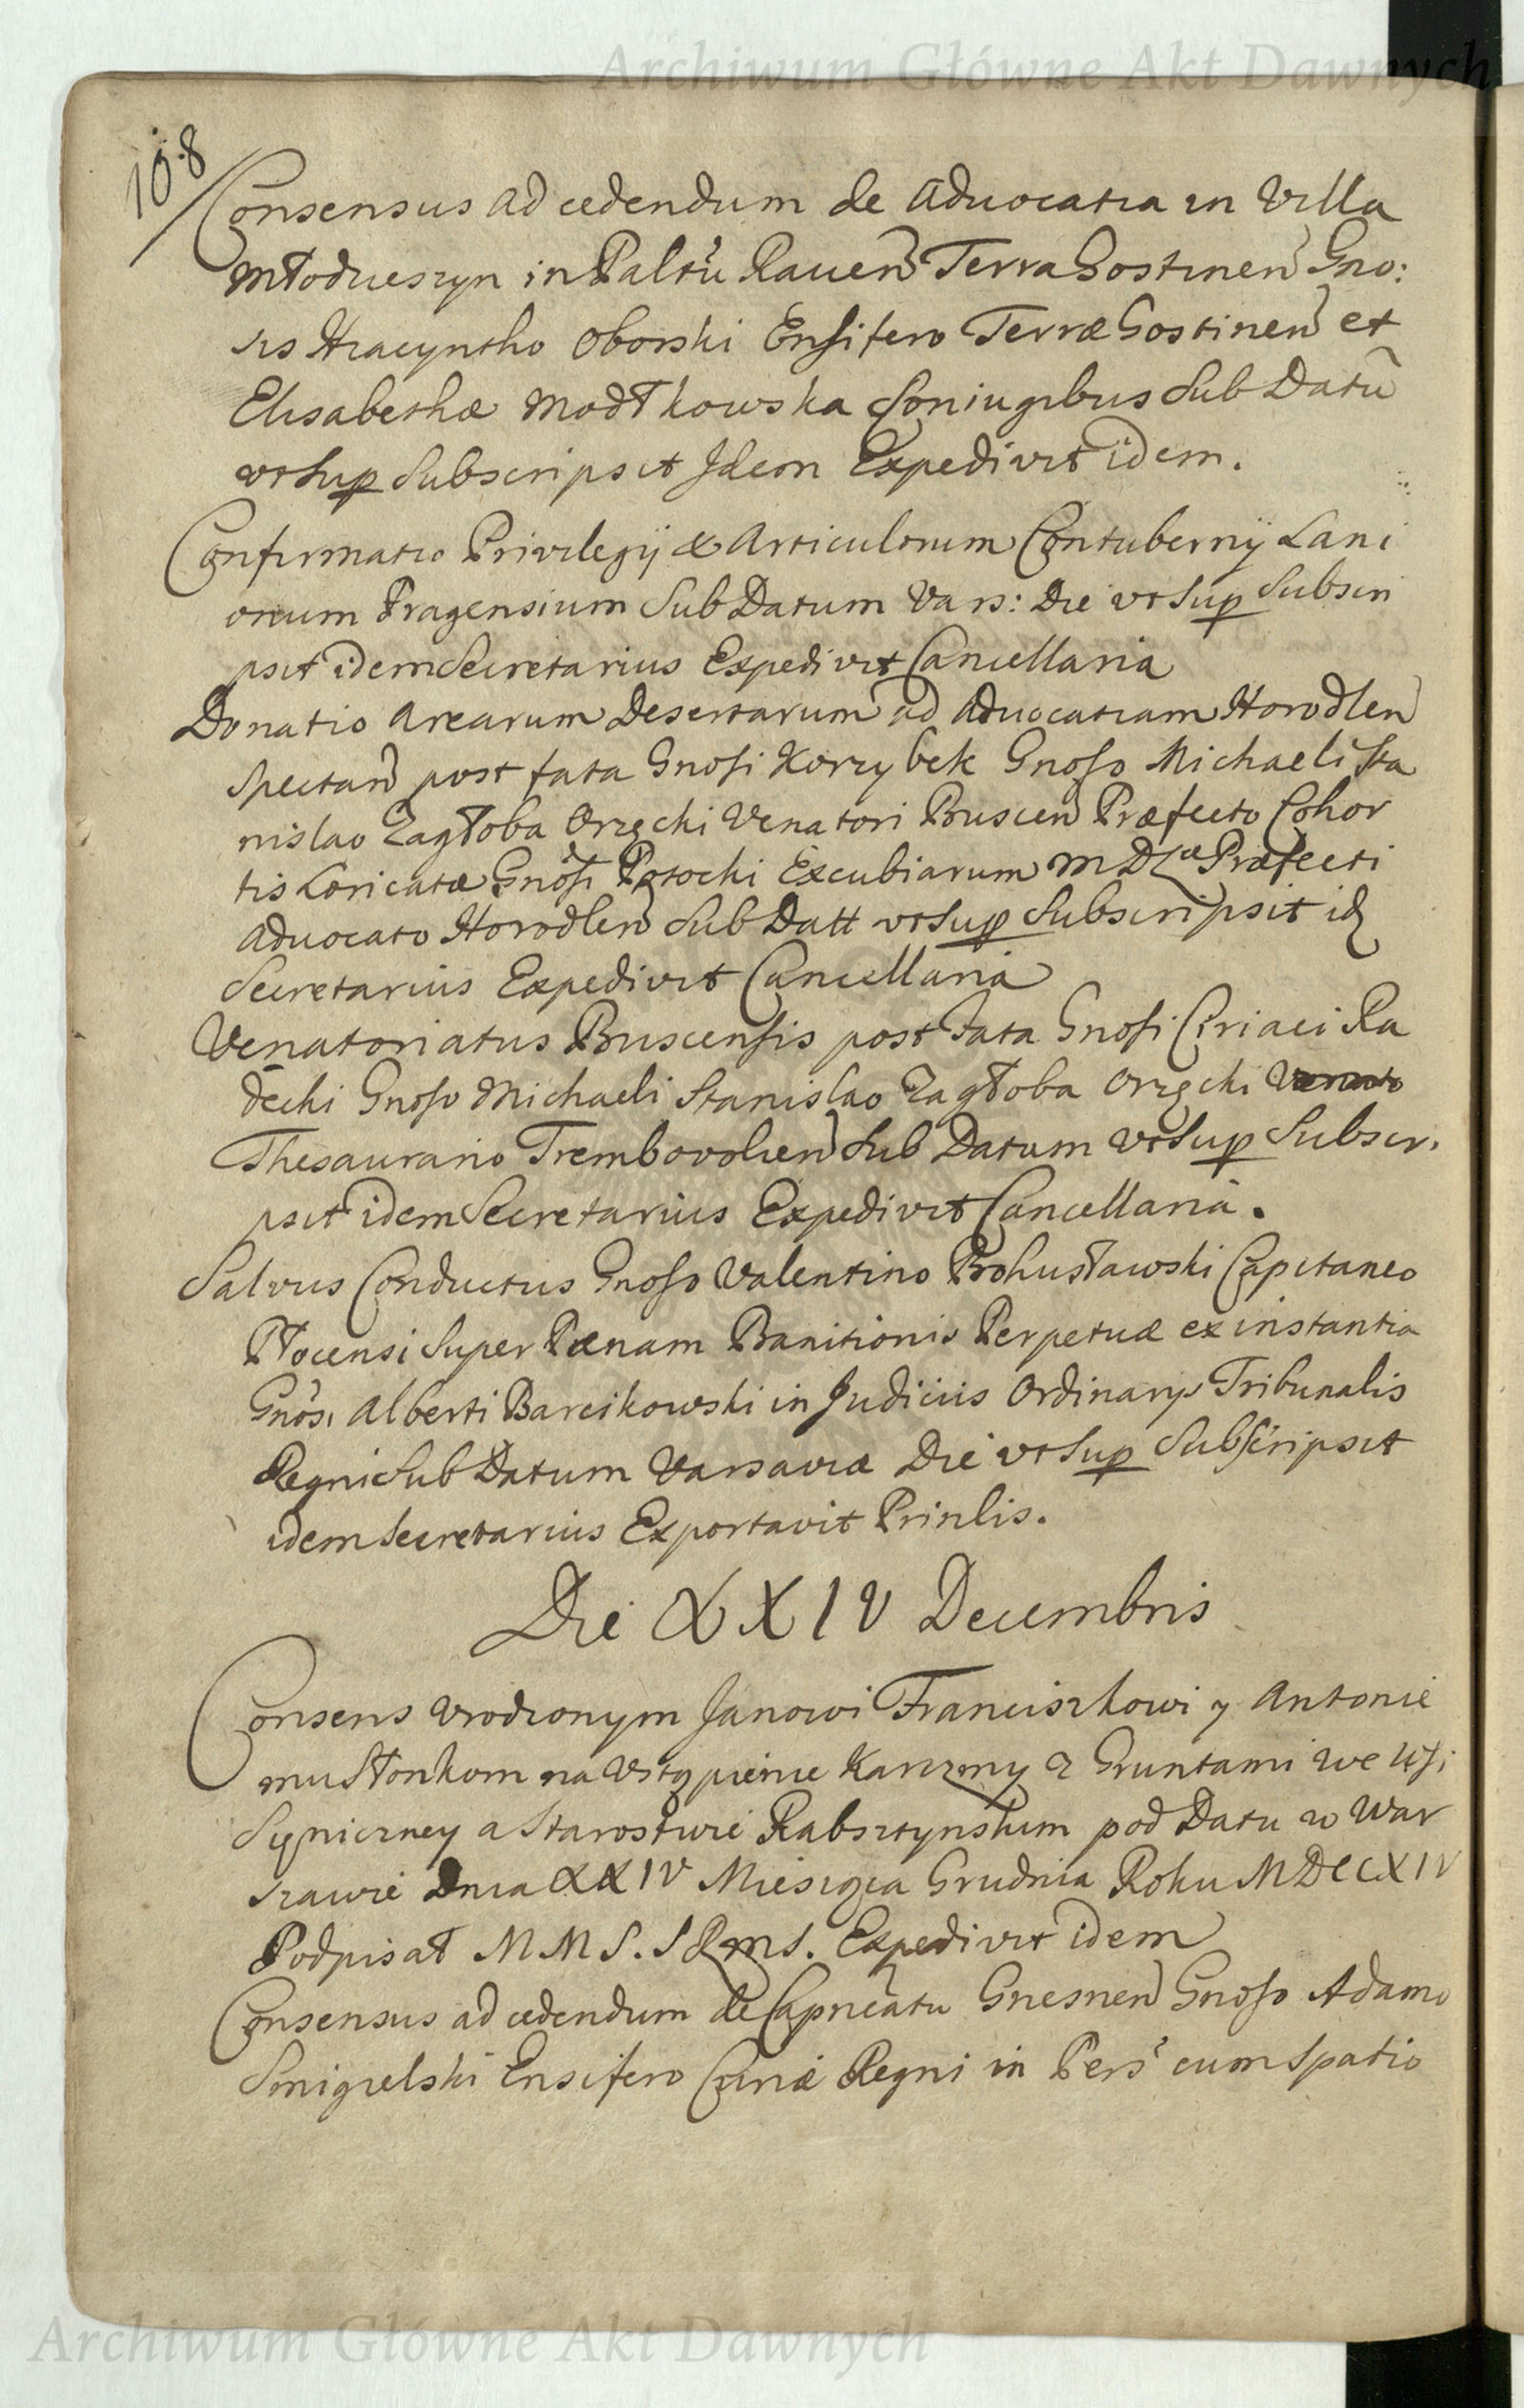 Archiwum Główne Akt Dawnych
108
Consensus ad cedendum de Aduocatia in Villa
Młodzieszyn in Paltu Rauen Terra Gostinen Gno:
sis Hiacyntho Oborski Ensifero Terræ Gostinen et
Elisabethæ Modłkowska Coniugibus Sub Datu
vt Sup Subscripsit Idem Expedivit idem.
Confirmatio Privilegij & Articulorum Contubernij Lani
onum Pragensium Sub Datum Vars: Die vt Sup Subscri
psit idem Secretarius Expedivit Cancellaria
Donatio Arearum Desertarum ad Aduocatiam Horodlen
Spectan post fata Gnosi Korzybek Gnoso Michaeli Sta
nislao Zagłoba Orzęcki Venatori Buscen Præfecto Cohor
tis Loricatæ Gnosi Potocki Excubiarum M D L æ Præfecti
Aduocato Horodlen Sub Datt vt Sup Subscripsit id
Secretarius Expedivit Cancellaria
Venatoriatus Buscensis post Fata Gnosi Ciriaci Ra
decki Gnoso Michaeli Stanislao Zagłoba Orzęcki
Thesaurario Trembovolien Sub Datum vt Sup Subscr.
psit idem Secretarius Expedivit Cancellaria.
Salvus Conductus Gnoso Valentino Bohusławski Capitaneo
Płocensi Super Pænam Banitionis Perpetuæ ex instantia
Gnosi Alberti Barcikowski in Judiciis Ordinarys Tribunalis
Regni Sub Datum Varsaviæ Die vt Sup Subscripsit
idem Secretarius Exportavit Prinlis.
Die XXIV Decembris
Consens Vrodzonym Janowi Franciszkowi y Antonie
mu Słonkom na Vstąpienie Karczmy z Gruntami we Wsi
Sięniczney a Starostwie Rabsztynskim pod Datu w War
szawie Dnia XXIV Miesiąca Grudnia Roku MDCCXIV
Podpisał M M S. S R M S. Expedivit idem
Consensus ad cedendum de Capneatu Gnesnen Gnoso Adamo
Smigielski Ensifero Curiæ Regni in Pers cum Spatio
Archiwum Główne Akt Dawnych